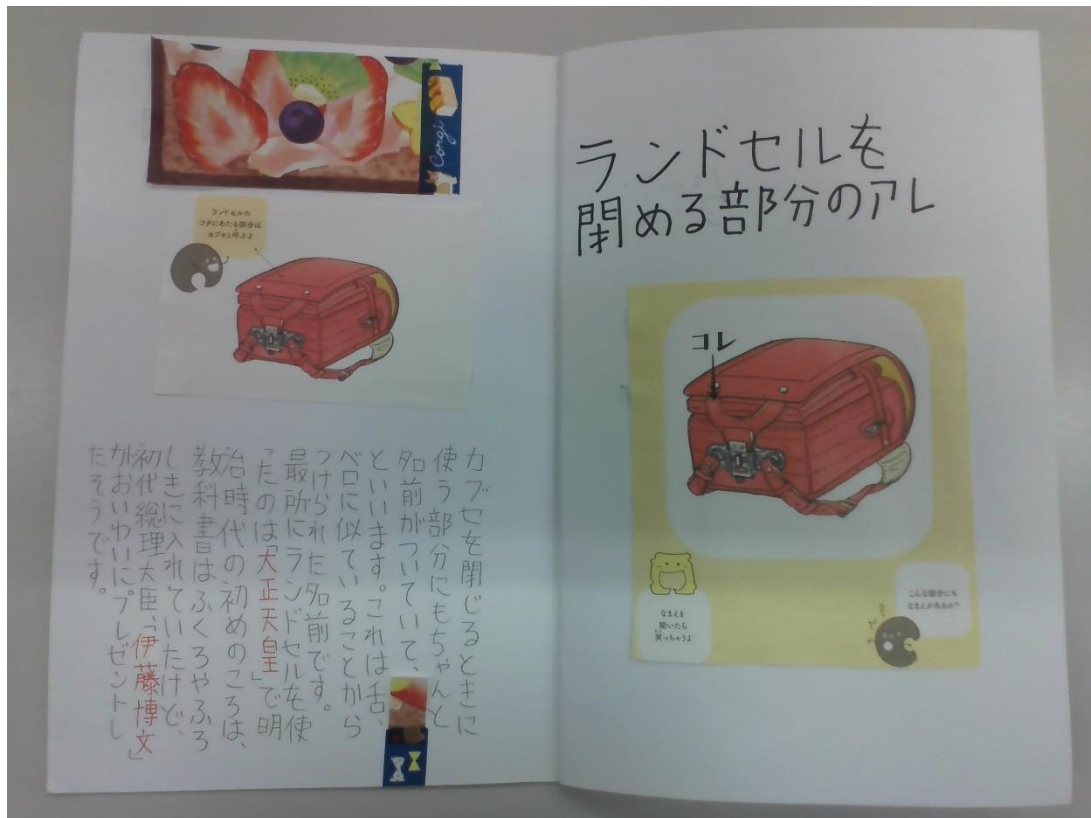 ランドセルを
閉める部分のアレ
コレ
なまえを
聞いたら
笑っちゃうよ
こんな部分にも
なまえがあるの?
Corgi
ランドセルの
フタにあたる部分は
カブセと呼ぶよ
カブセを閉じるときに
使う部分にもちゃんと
名前がついていて、
といいます。これは舌、
ベロに似ていることから
つけられた名前です。
最所にランドセルを使
ったのは「大正天皇」で明
治時代の初めのころは、
教科書はふくろやふろ
しきに入れていたけど、
初代総理大臣、「伊藤博文」
がおいわいにプレゼントし
たそうです。